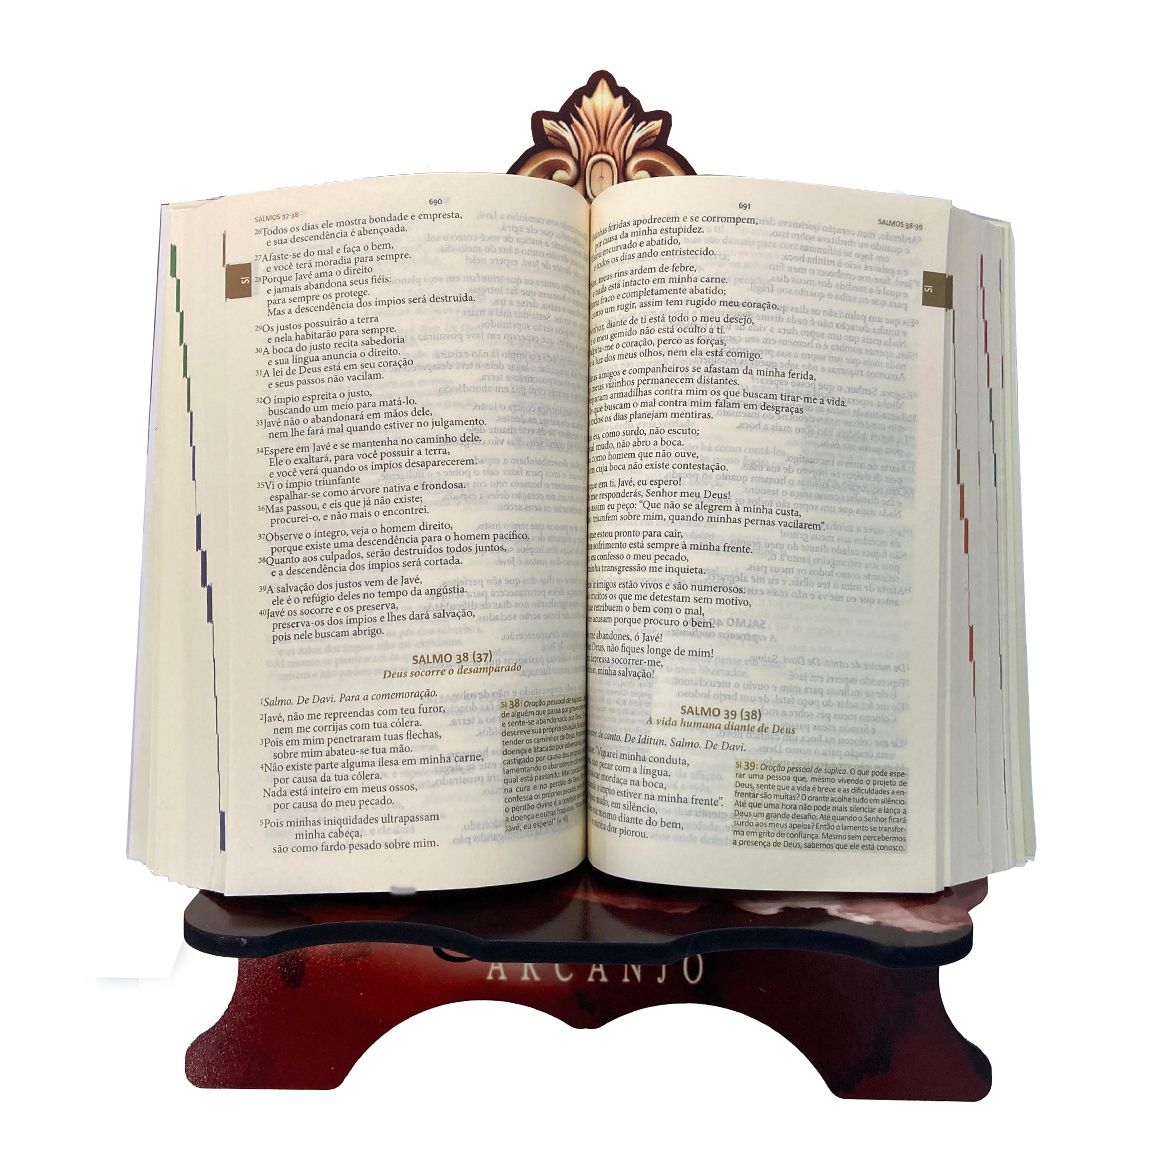 690
SALMOS 37-38
26Todos os dias ele mostra bondade e empresta,
e sua descendência é abençoada.
27Afaste-se do mal e faça o bem,
e você terá moradia para sempre.
28Porque Javé ama o direito
e jamais abandona seus fiéis:
para sempre os protege.
Mas a descendência dos ímpios será destruída.
29Os justos possuirão a terra
e nela habitarão para sempre.
30A boca do justo recita sabedoria
e sua língua anuncia o direito.
31A lei de Deus está em seu coração
e seus passos não vacilam.
32O ímpio espreita o justo,
buscando um meio para matá-lo.
33Javé não o abandonará em mãos dele,
nem lhe fará mal quando estiver no julgamento.
34Espere em Javé e se mantenha no caminho dele.
Ele o exaltará, para você possuir a terra,
e você verá quando os ímpios desaparecerem.
35Vi o ímpio triunfante
espalhar-se como árvore nativa e frondosa.
36Mas passou, e eis que já não existe;
procurei-o, e não mais o encontrei.
37Observe o íntegro, veja o homem direito,
porque existe uma descendência para o homem pacífico.
38Quanto aos culpados, serão destruídos todos juntos,
e a descendência dos ímpios será cortada.
39A salvação dos justos vem de Javé,
ele é o refúgio deles no tempo da angústia.
40Javé os socorre e os preserva,
preserva-os dos ímpios e lhes dará salvação,
pois nele buscam abrigo.
SALMO 38 (37)
Deus socorre o desamparado
1Salmo. De Davi. Para a comemoração.
2Javé, não me repreendas com teu furor,
nem me corrijas com tua cólera.
3Pois em mim penetraram tuas flechas,
sobre mim abateu-se tua mão.
4Não existe parte alguma ilesa em minha carne,
por causa da tua cólera.
Nada está inteiro em meus ossos,
por causa do meu pecado.
5Pois minhas iniquidades ultrapassam
minha cabeça,
são como fardo pesado sobre mim.
Sl 38: Oração pessoal de súplica,
de alguém que passa por grave
e sente-se abandonado por D
descreve sua própria situação,
tender os caminhos de Deus.
doença e atacado por adversários,
castigado por causa dos próprios
lamentando o abandono e
qual está passando. Mas
na cura e no perdão de
confessa os próprios pecados
o perdão divino é a condição
a doença e outras
Javé, eu espero!" (v. 16).
Sl
691
SALMOS 38-39
feridas apodrecem e se corrompem,
por causa da minha estupidez.
encurvado e abatido,
todos os dias ando entristecido.
meus rins ardem de febre,
nada está intacto em minha carne.
fraco e completamente abatido;
como um rugir, assim tem rugido meu coração.
diante de ti está todo o meu desejo,
o meu gemido não está oculto a ti.
me o coração, perco as forças,
luz dos meus olhos, nem ela está comigo.
amigos e companheiros se afastam da minha ferida,
meus vizinhos permanecem distantes.
armadilhas contra mim os que buscam tirar-me a vida.
que buscam o mal contra mim falam em desgraças
todos os dias planejam mentiras.
eu, como surdo, não escuto;
mudo, não abro a boca.
como homem que não ouve,
em cuja boca não existe contestação.
em ti, Javé, eu espero!
me responderás, Senhor meu Deus!
assim eu peço: "Que não se alegrem à minha custa,
triunfem sobre mim, quando minhas pernas vacilarem".
estou pronto para cair,
sofrimento está sempre à minha frente.
eu confesso o meu pecado,
minha transgressão me inquieta.
inimigos estão vivos e são numerosos.
muitos os que me detestam sem motivo,
retribuem o bem com o mal,
acusam porque procuro o bem.
me abandones, ó Javé!
Deus, não fiques longe de mim!
depressa socorrer-me,
minha salvação!
SALMO 39 (38)
A vida humana diante de Deus
de canto. De Iditun. Salmo. De Davi.
"Vigiarei minha conduta,
não pecar com a língua.
mordaça na boca,
o ímpio estiver na minha frente".
mudo, em silêncio,
mesmo diante do bem,
minha dor piorou.
Sl 39: Oração pessoal de súplica. O que pode espe-
rar uma pessoa que, mesmo vivendo o projeto de
Deus, sente que a vida é breve e as dificuldades a en-
frentar são muitas? O orante acolhe tudo em silêncio.
Até que uma hora não pode mais silenciar e lança a
Deus um grande desafio: Até quando o Senhor ficará
surdo aos meus apelos? Então o lamento se transfor-
ma em grito de confiança. Mesmo sem percebermos
a presença de Deus, sabemos que ele está conosco.
Sl
ARCANJO